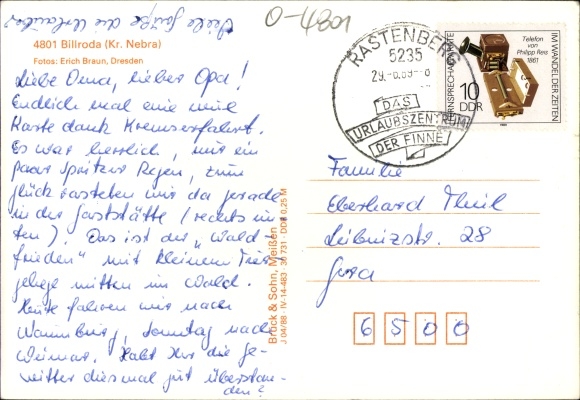 Viele Grüße die Urlauber
O-4801
4801 Billroda (Kr. Nebra)
Fotos: Erich Braun, Dresden
Liebe Oma, lieber Opa!
Endlich mal eine
Karte dank Kremserfahrt.
Es war herrlich, nur ein
paar Spritzer Regen, zum
Glück rasteten wir da gerade
in der Gaststätte (rechts un
ten). Das ist der "Wald-
frieden" mit kleinem Tier
gehege mitten im Wald.
Heute fahren wir nach
Naumburg, Sonntag nach
Weimar. Habt Ihr die Ge-
witter diesmal gut überstan-
den?
Brück & Sohn, Meißen
J 04/88 · IV-14-483 · 30 731 · DDR 0,25 M
RASTENBERG
5235
29.-6.89-
DAS
URLAUBSZENTRUM
DER FINNE
Telefon
von
Philipp Reis
1861
IM WANDEL DER ZEITEN
FERNSPRECHAPPARATE
10
DDR
Familie
Eberhard Theil
Leibnizstr. 28
Gera
6500